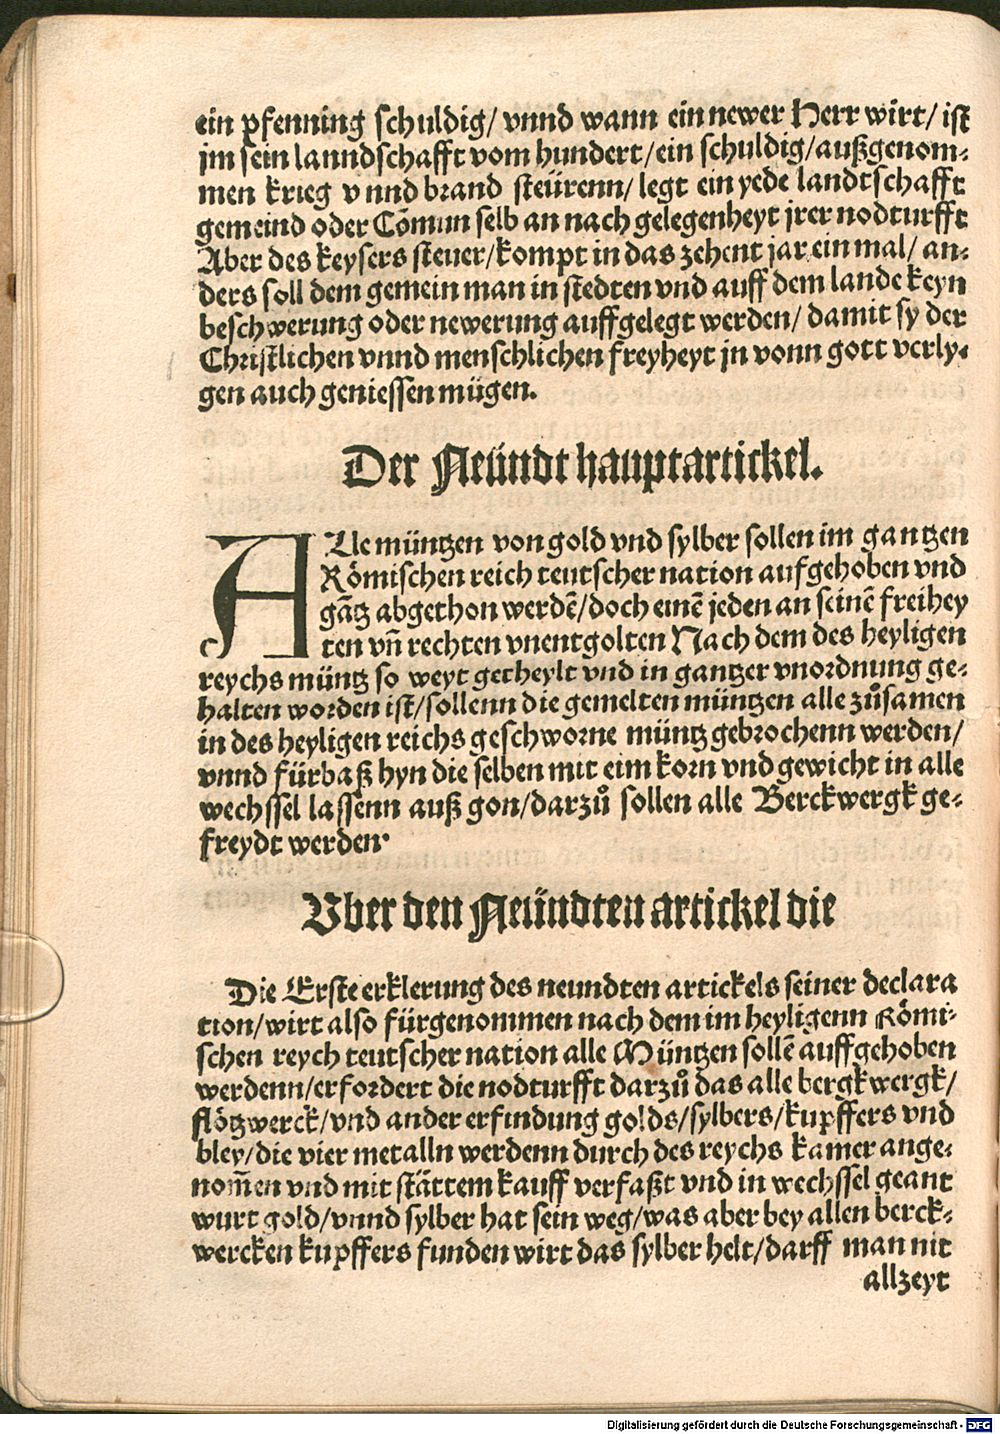 ein pfenning schuldig/ vnnd wann ein newer Herr wirt/ ist
jm sein lanndschafft vom hundert/ein schuldig/außgenom⸗
men krieg vnnd brand steürenn/ legt ein yede landtschafft
gemeind oder Cõmun selb an nach gelegenheyt jrer nodturfft
Aber des keysers steuer/kompt in das zehent jar ein mal/ an⸗
ders soll dem gemein man in stedten vnd auff dem lande keyn
beschwerung oder newerung auffgelegt werden/ damit sy der
Christlichen vnnd menschlichen freyheyt jn vonn gott verly⸗
gen auch geniessen mügen.
Der Neündt hauptartickel.
ALle müntzen von gold vnd sylber sollen im gantzen
Römischen reich teutscher nation aufgehoben vnd
gãtz abgethon werdẽ/doch einẽ jeden an seinẽ freihey
ten vñ rechten vnentgolten Nach dem des heyligen
reychs müntz so weyt getheylt vnd in gantzer vnordnung ge⸗
halten worden ist/sollenn die gemelten müntzen alle zůsamen
in des heyligen reichs geschworne müntz gebrochenn werden/
vnnd fürbaß hyn die selben mit eim korn vnd gewicht in alle
wechssel lassenn auß gon/darzů sollen alle Berckwergk ge⸗
freydt werden.
Vber den Neündten artickel die
Die Erste erklerung des neundten artickels seiner declara
tion/wirt also fürgenommen nach dem im heyligenn Römi⸗
schen reych teutscher nation alle Müntzen sollẽ auffgehoben
werdenn/erfordert die nodturfft darzů das alle bergkwergk/
flötzwerck/vnd ander erfindung golds/sylbers/kupffers vnd
bley/die vier metalln werdenn durch des reychs kamer ange⸗
nom̃en vnd mit stättem kauff verfaßt vnd in wechssel geant
wurt gold/vnnd sylber hat sein weg/was aber bey allen berck⸗
wercken kupffers funden wirt das sylber helt/darff man nit
allzeyt
Digitalisierung gefördert durch die Deutsche Forschungsgemeinschaft - DFG